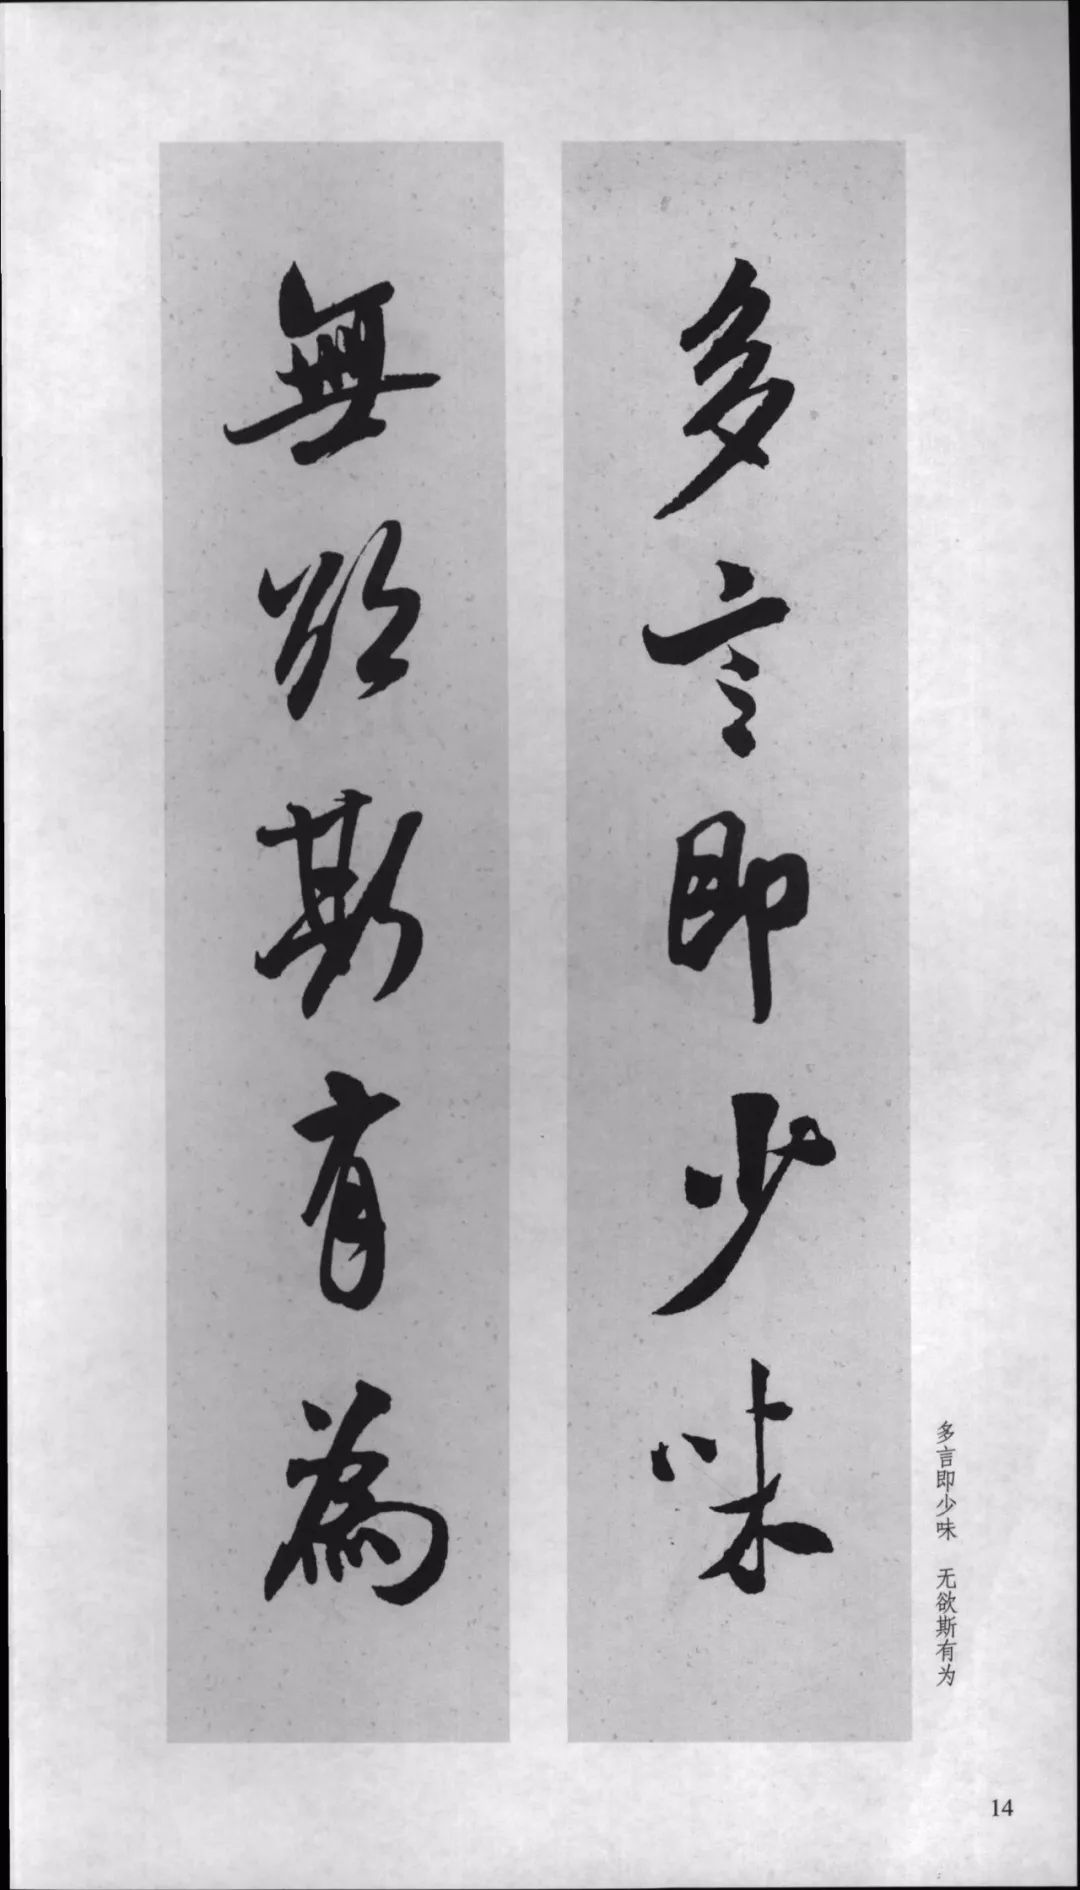 多言即少味
無欲斯有為
多言即少味　无欲斯有为
14